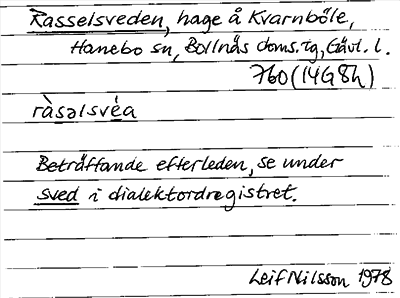 Rasselsveden, hage å Kvarnböle,
Hanebo sn, Bollnäs doms.tg, Gävl. l.
760 (14G8h)
ràsəlsvéa
Beträffande efterleden, se under
sved i dialektordregistret.
Leif Nilsson 1978